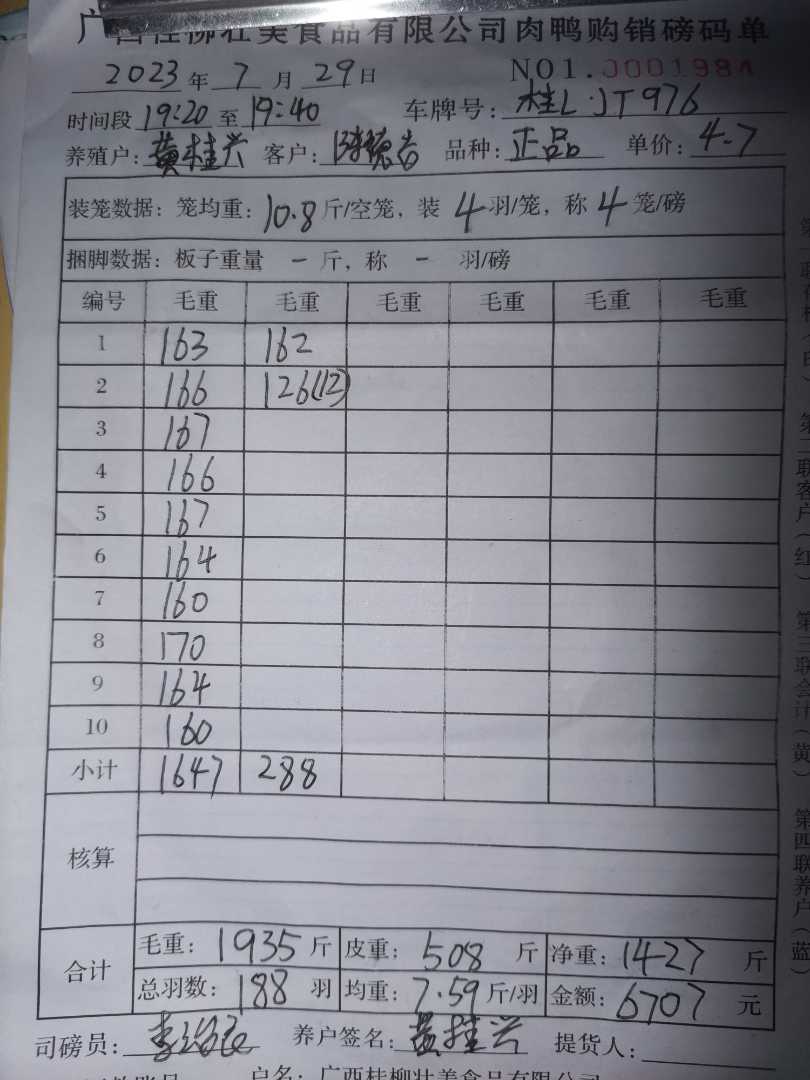 广西桂柳壮美食品有限公司肉鸭购销磅码单
2023年7月29日 NO1.0001984
时间段19:20至19:40 车牌号:桂L·JT976
养殖户:黄桂兴 客户: 品种:正品 单价:4-7
装笼数据:笼均重:10.8斤/空笼,装4羽/笼,称4笼/磅
捆脚数据:板子重量-斤,称-羽/磅
编号 毛重 毛重 毛重 毛重 毛重 毛重
1 163 162
2 166 126(12)
3 167
4 166
5 167
6 164
7 160
8 170
9 164
10 160
小计 1647 288
核算
合计 毛重:1935斤 皮重:508斤 净重:1427斤
总羽数:188羽 均重:7.59斤/羽 金额:6707元
司磅员: 养户签名:黄桂兴 提货人:
户名:广西桂柳壮美食品有限公司
第二联客户(红) 第三联会计(黄) 第四联养户(蓝)